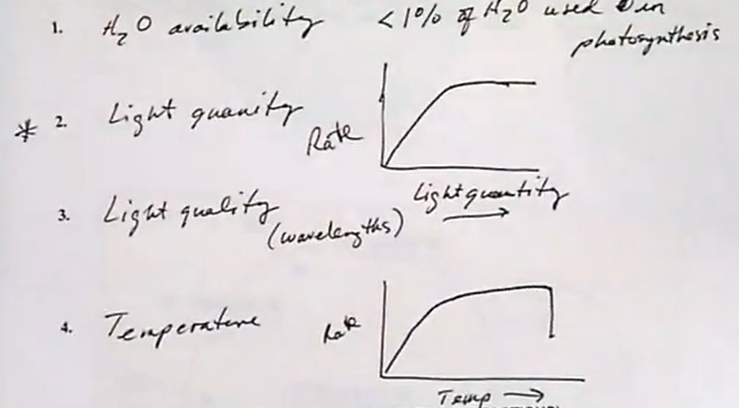 1. H₂O availability <1% of H₂O used in
photosynthesis
* 2. Light quanity
Rate
Light quantity
3. Light quality
(wavelengths)
4. Temperature
Rate
Temp